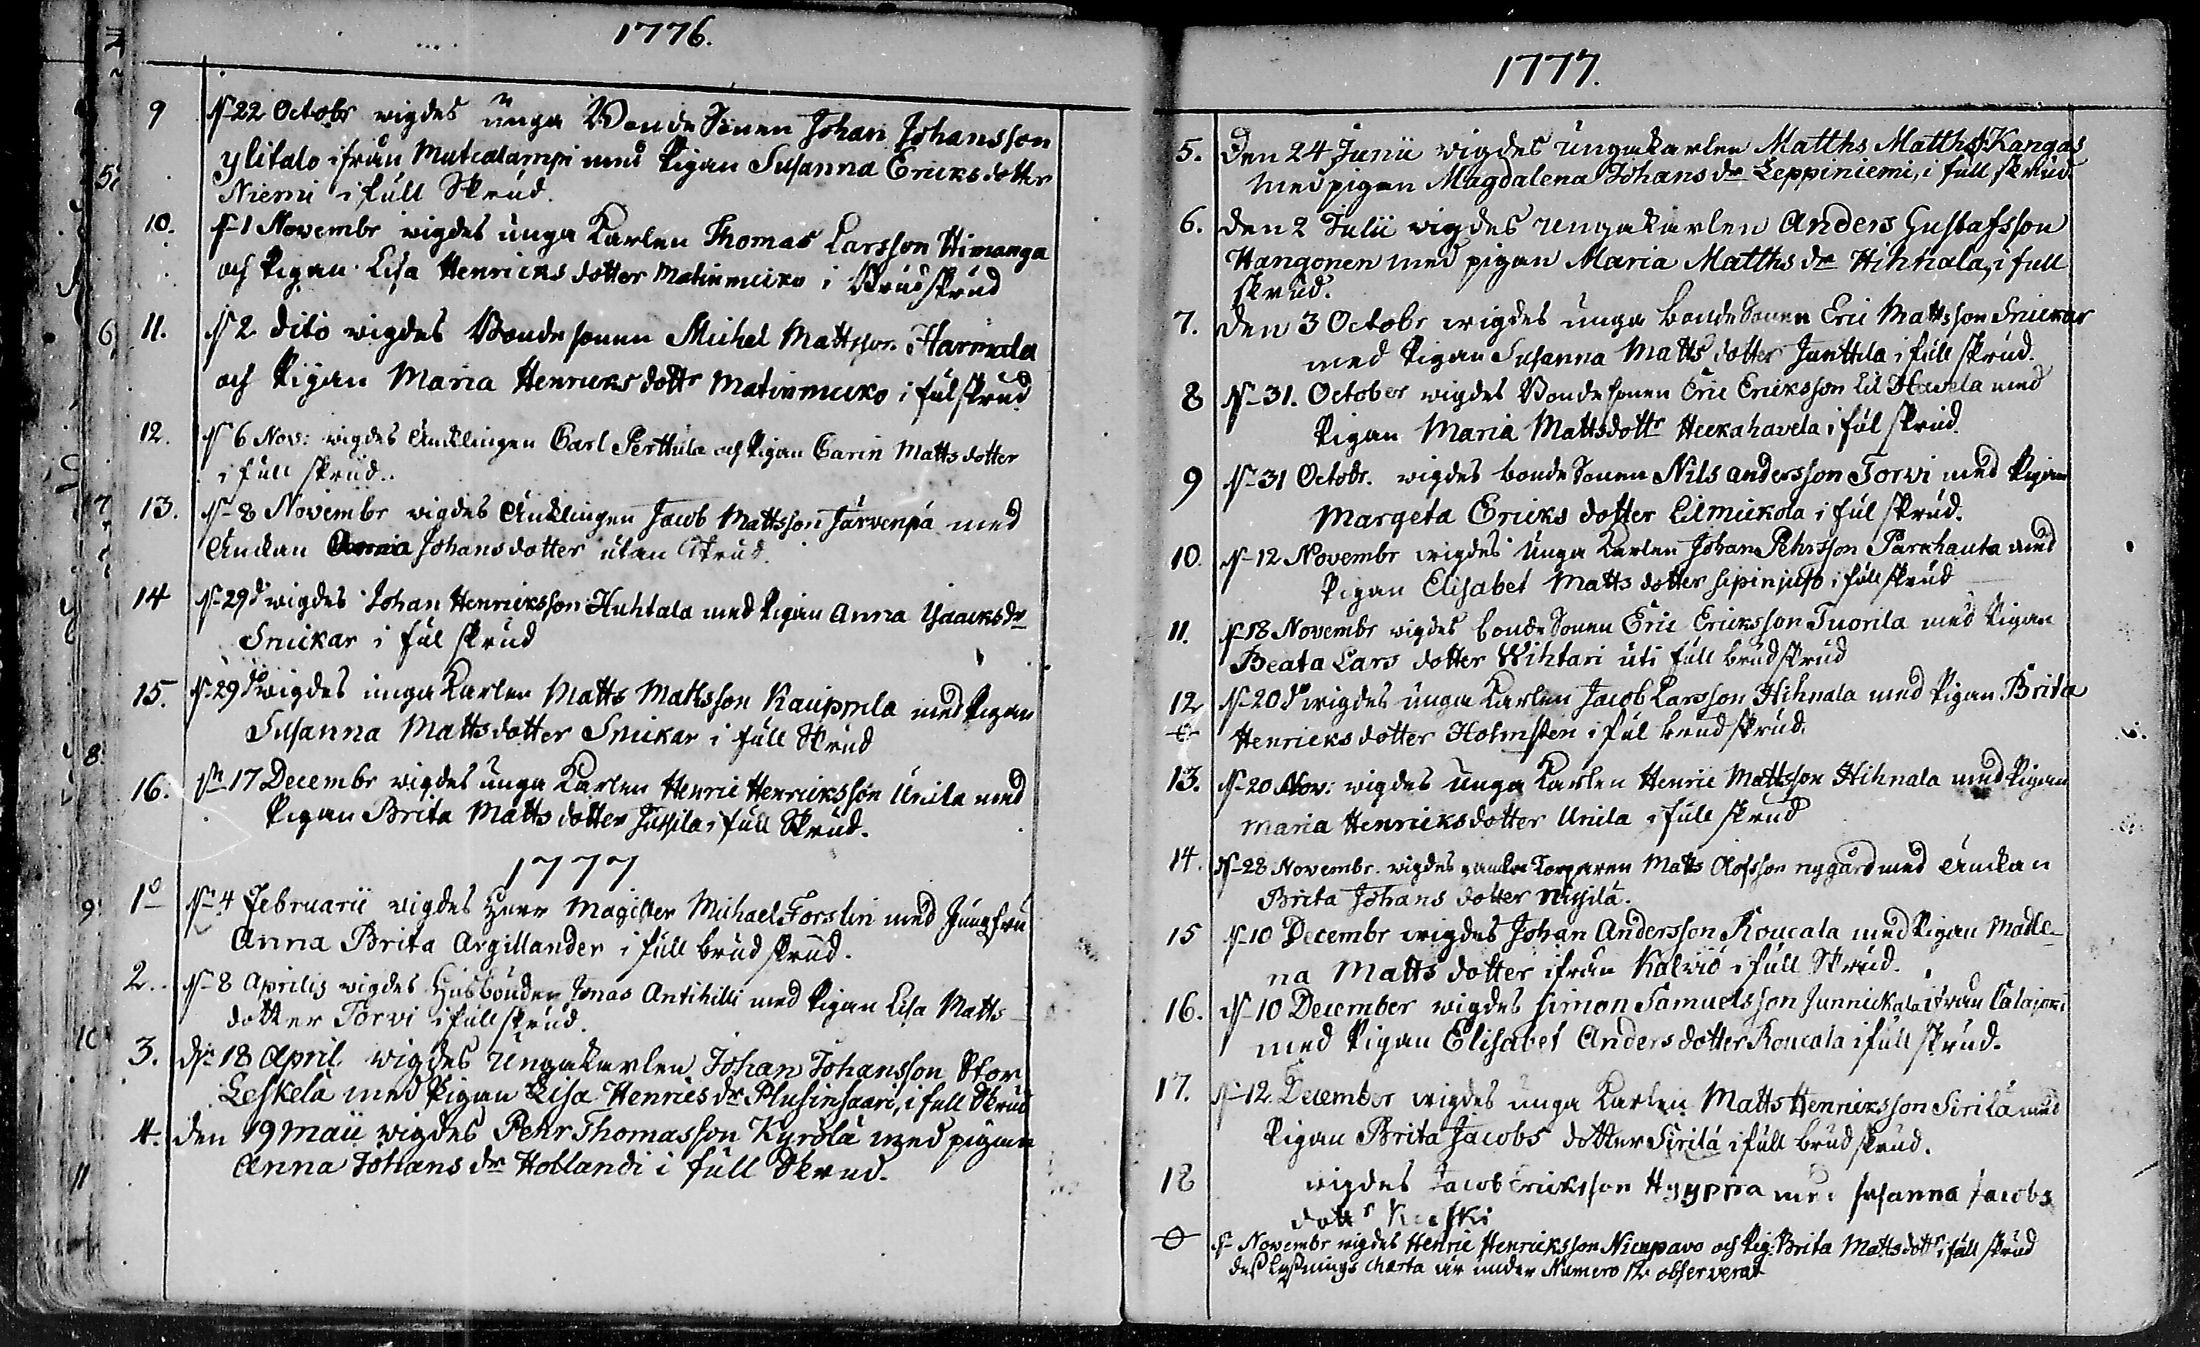 1776.
9 d 22 Octobr wigdes unga Bonde Sonen Johan Johansson
Ylitalo ifrån Mutcalampi med Pigan Susanna Ericksdotter
Niemi i full Skrud.
10. d 1 Novembr wigdes unga Karlen Thomas Larsson Himanga
och Pigan Lisa Henricksdotter Matinmicko i Brudskrud
11. d 2 dito wigdes Bonde sonen Michel Mattsson Harmala
och Pigan Maria Henricks dottr Matinmicko i ful skrud
12. d 6 Nov: wigdes Encklingen Carl Perttula och Pigan Carin Matts dotter
i full skrud.
13. d 8 Novembr wigdes Encklingen Jacob Mattsson Järvenpä med
Enckan Anna Johansdotter utan Skrud.
14 d 29 do wigdes Johan Henricksson Huhtala med Pigan Anna Isaacks dr
Snickar i ful skrud
15. d 29 do wigdes unga Karlen Matts Mattsson Kauppila med Pigan
Susanna Mattsdotter Snickar i full Skrud
16. dn 17 Decembr wigdes unga Karlen Henric Henricksson Unila med
Pigan Brita Matts dotter Jussila i full Skrud.
1777
1o dn 4 Februarii wigdes Herr Magister Michael Forslin med Jungfru
Anna Brita Argillander i full brud skrud.
2. d 8 Aprilis wigdes Husbonden Jonas Antihilli med Pigan Lisa Matts
dotter Torvi i full skrud.
3. de 18 April wigdes Ungakarlen Johan Johansson Stor
Leskelä med Pigan Lisa Henrics dr Plusinsaari, i full Skrud
4. den 19 Maii wigdes Pehr Thomasson Kyrölä med pigan
Anna Johans dr Hollandi i full Skrud.
1777.
5. Den 24 Junii wigdes Ungakarlen Matths Matths: Kangas
med pigan Magdalena Johans dr Leppiniemi, i full skrud.
6. den 2 Julii wigdes Ungakarlen Anders Gustafsson
Hangonen med pigan Maria Matths dr Hihnala, i full
skrud.
7. den 3 Octobr wigdes unga bonde Sonen Eric Mattsson Snickar
med Pigan Susanna Matts dotter Junttila i full skrud.
8 d 31. October wigdes Bonde sonen Eric Ericksson Lil Havela med
Pigan Maria Mattsdottr Heckahavela i ful skrud.
9 d 31 Octobr. wigdes bonde Sonen Nils andersson Torvi med Pigan
Margeta Ericks dotter Lilmickola i ful skrud.
10. d 12 Novembr wigdes Unga Karlen Johan Pehrsson Parahauta med
Pigan Elisabet Matts dotter sipinjuso i full skrud
11. d 18 Novembr wigdes bonde Sonen Eric Ericksson Tuorila med Pigan
Beata Lars dotter Wihtari uti full brudskrud
12 d 20 do wigdes unga Karlen Jacob Larsson Hihnala med Pigan Brita
Henricks dotter Holmsten i ful brudskrud.
13. d 20 Nov: wigdes Unga Karlen Henric Mattsson Hihnala med Pigan
Maria Henricksdotter Unila i full skrud
14. d 28 Novembr. wigdes gamla Torparen Matts Olofsson nygård med Enckan
Brita Johans dotter Nissilä.
15 d 10 Decembr wigdes Johan Andersson Koucala med Pigan Madle-
na Matts dotter ifrån Kalviö i full Skrud.
16. d 10 December wigdes Simon Samuelsson Junnickala ifrån Calajoki
med Pigan Elisabet Anders dotter Koucala i full skrud.
17. d 12 December wigdes unga Karlen Matts Henricksson Sirilä med
Pigan Brita Jacobs dotter Sirilä i full brudskrud.
18 wigdes Jacob Ericksson Hyyppä med susanna Jacobs
dottr Koski
d Novembr wigdes Henric Henricksson Niempavo och Pig: Brita Mattsdottr i full skrud
des Lysnings charta är under Numero 12 observerat